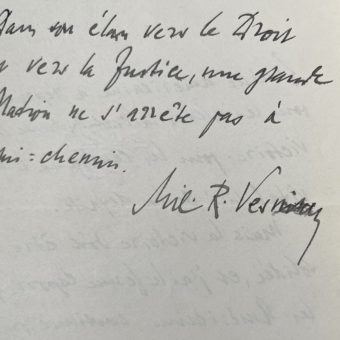 Dans son élan vers le Droit
vers la Justice, une grande
Nation ne s'arrête pas à
mi=chemin.
Mil. R.